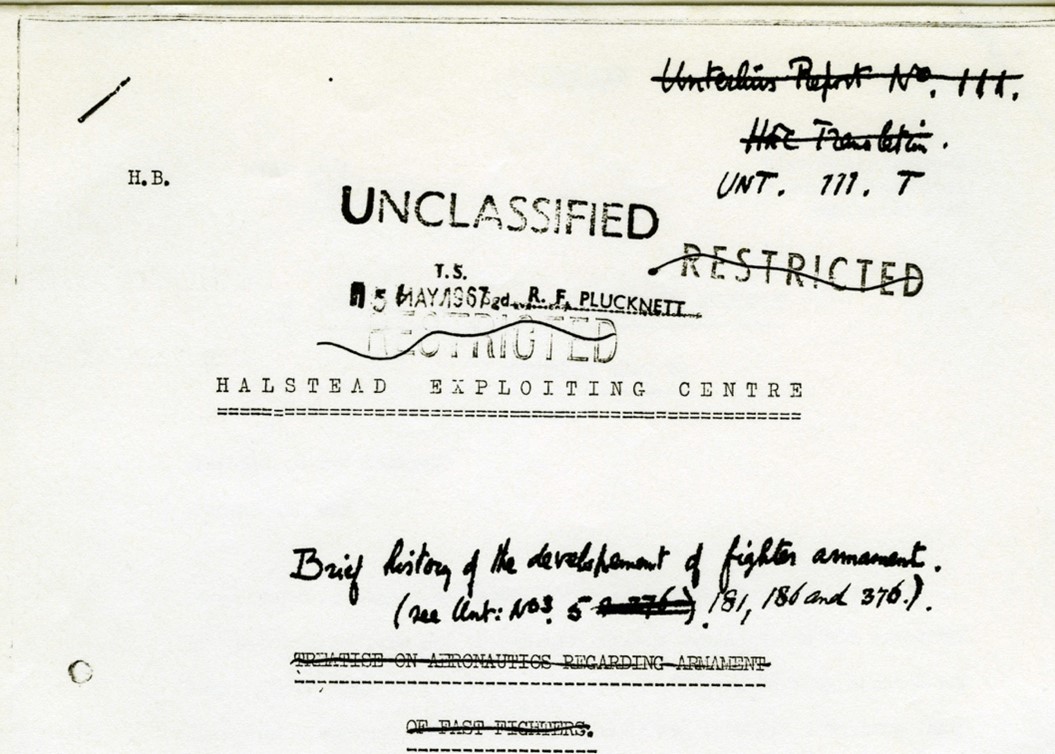 Unterlüss Report No. 111.
HEC Translation.
UNT. 111. T
H.B.
UNCLASSIFIED
RESTRICTED
T.S.
15 MAY 1967 R. F. PLUCKNETT
RESTRICTED
HALSTEAD EXPLOITING CENTRE
Brief history of the developement of fighter armament.
(see Unt: Nos. 5 181, 186 and 376.).
TREATISE ON AERONAUTICS REGARDING ARMAMENT
OF FAST FIGHTERS.